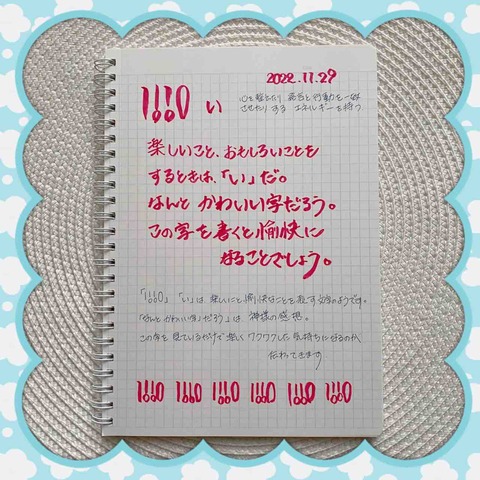 2022.11.29
い
心を整えたり 発音と行動を一致
させたりする エネルギーを持つ
楽しいこと、おもしろいことを
するときは、「い」だ。
なんと かわいい字だろう。
この字を書くと愉快に
なることでしょう。
「い」は、楽しいこと愉快なことを表す文字のようです。
「なんと かわいい字だろう」は、神様の感想。
この字を見ているだけで楽しくワクワクした気持ちになるのが
伝わってきます